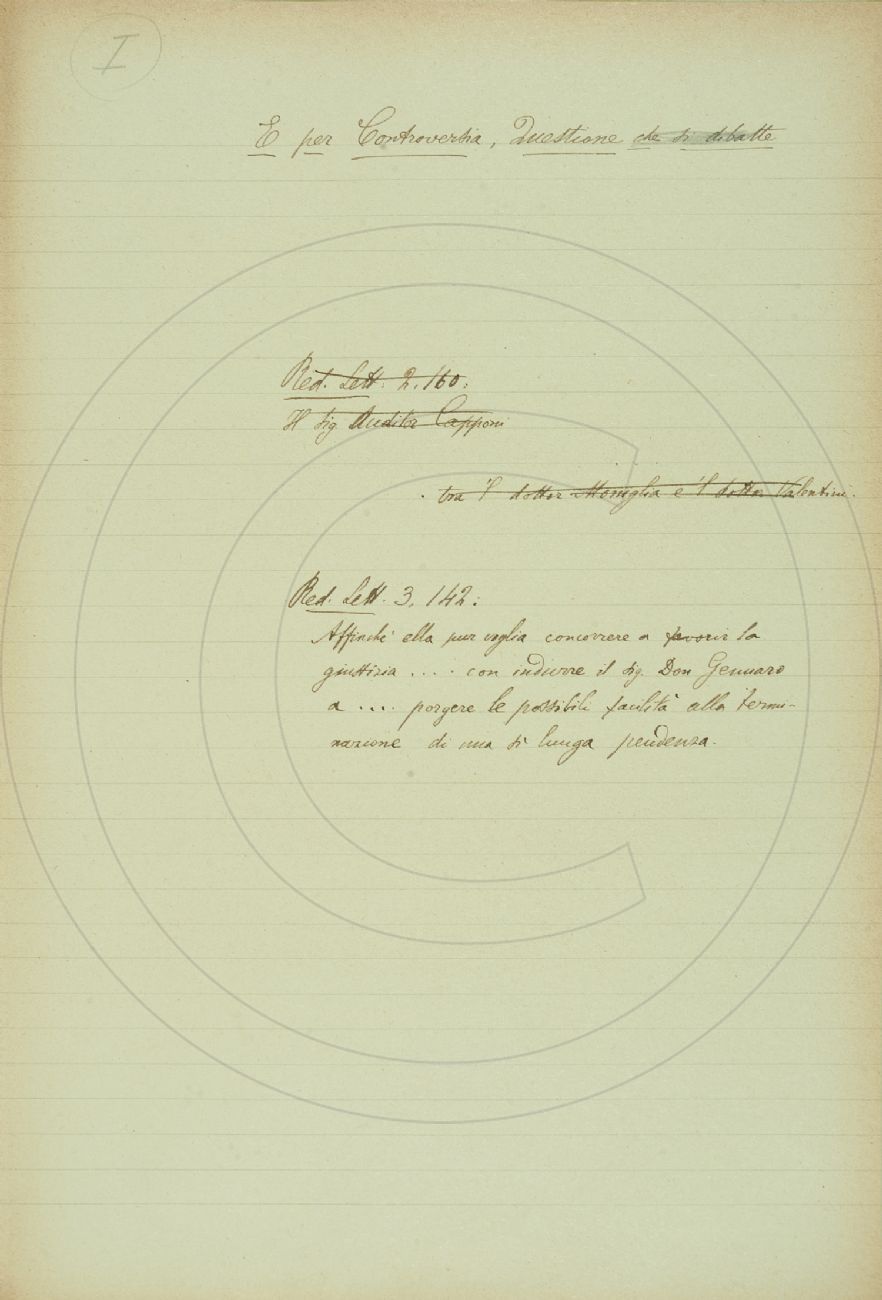 I
E per Controversia, Questione che si dibatte
Red. Lett. 2. 160:
Il sig. Auditor Capponi
tra 'l dottor Moniglia e 'l dottor Valentini.
Red. Lett. 3. 142:
Affinchè ella pur voglia concorrere a favorir la
giustizia .... con indurre il sig. Don Gennaro
a .... porgere le possibili facilità alla termi-
nazione di una sì lunga pendenza.